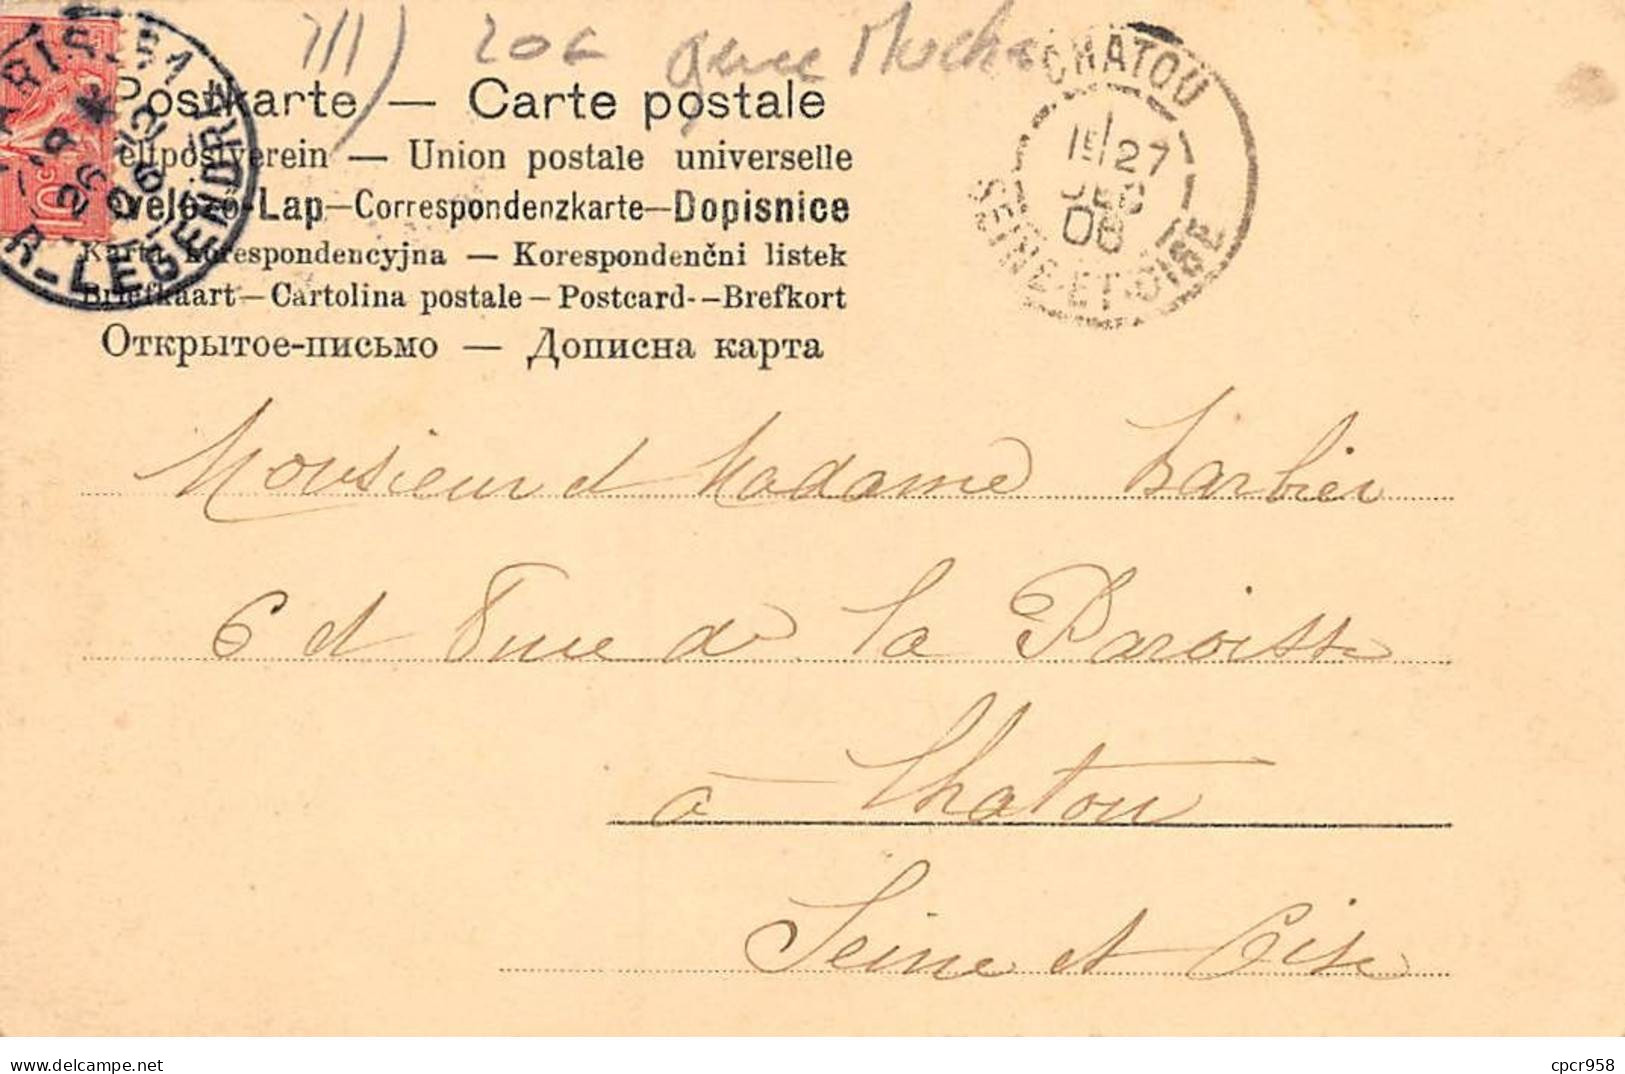 711) 20€ genre Mucha
Postkarte — Carte postale
Weltpostverein — Union postale universelle
Levelező-Lap—Correspondenzkarte—Dopisnice
Karta korespondencyjna — Korespondenčni listek
Briefkaart—Cartolina postale—Postcard--Brefkort
Открытое-письмо — Дописна карта
PARIS
R-LEGENDRE
26 12 06
10c
CHATOU
27
DEC
06
SEINE-ET-OISE
Monsieur et Madame Barbier
6 et 8 rue de la Paroisse
à Chatou
Seine et Oise
Delcampe.net
cpcr958